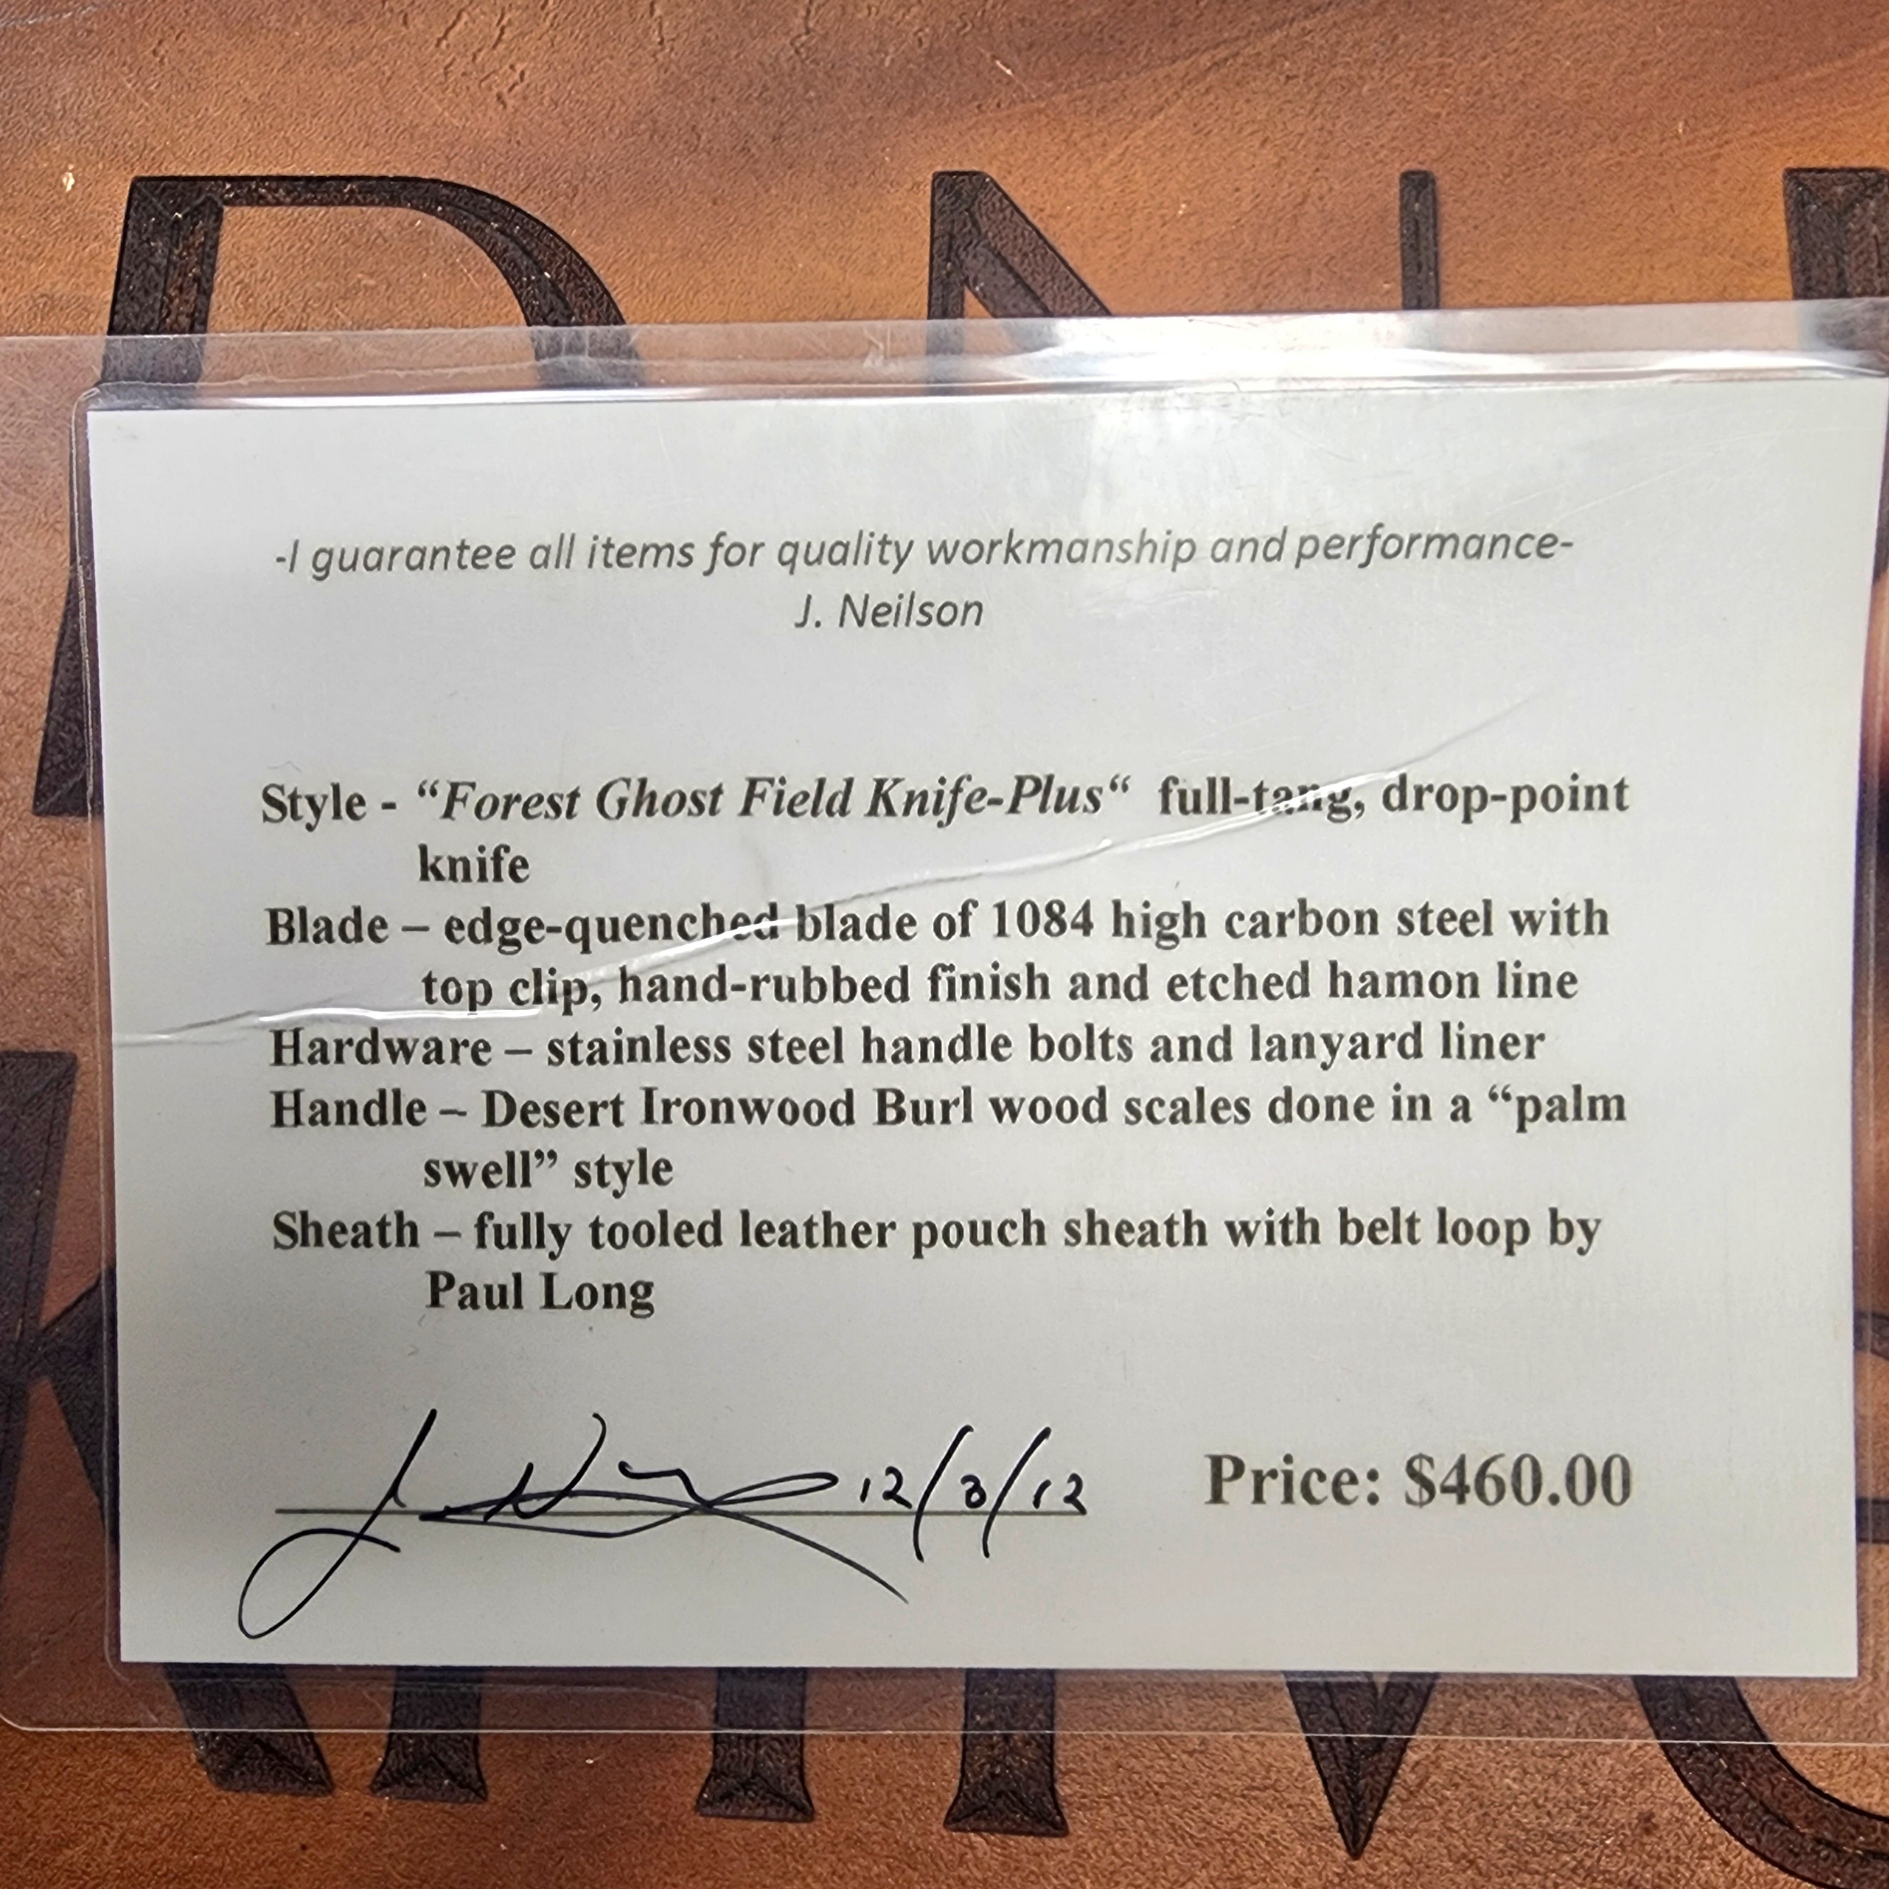 -I guarantee all items for quality workmanship and performance-
J. Neilson
Style - “Forest Ghost Field Knife-Plus“ full-tang, drop-point
knife
Blade – edge-quenched blade of 1084 high carbon steel with
top clip, hand-rubbed finish and etched hamon line
Hardware – stainless steel handle bolts and lanyard liner
Handle – Desert Ironwood Burl wood scales done in a “palm
swell” style
Sheath – fully tooled leather pouch sheath with belt loop by
Paul Long
12/3/12 Price: $460.00